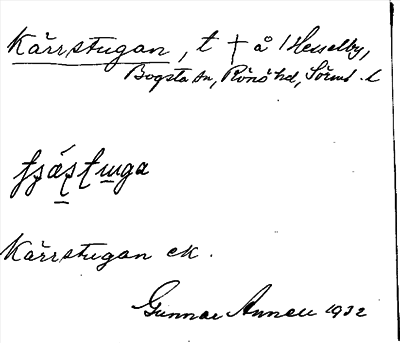 Kärrstugan, t † å Hesselby,
Bogsta sn, Rönö hd, Sörml. l
Kärrstugan ek.
Gunnar Annell 1932